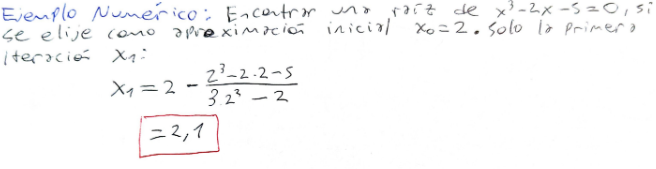 Ejemplo Numérico: Encontrar una raíz de x³-2x-5=0, si
se elije como aproximación inicial x₀=2. Solo la primera
Iteración X₁:
X₁ = 2 - (2³-2·2-5)/(3·2³-2)
=2,1